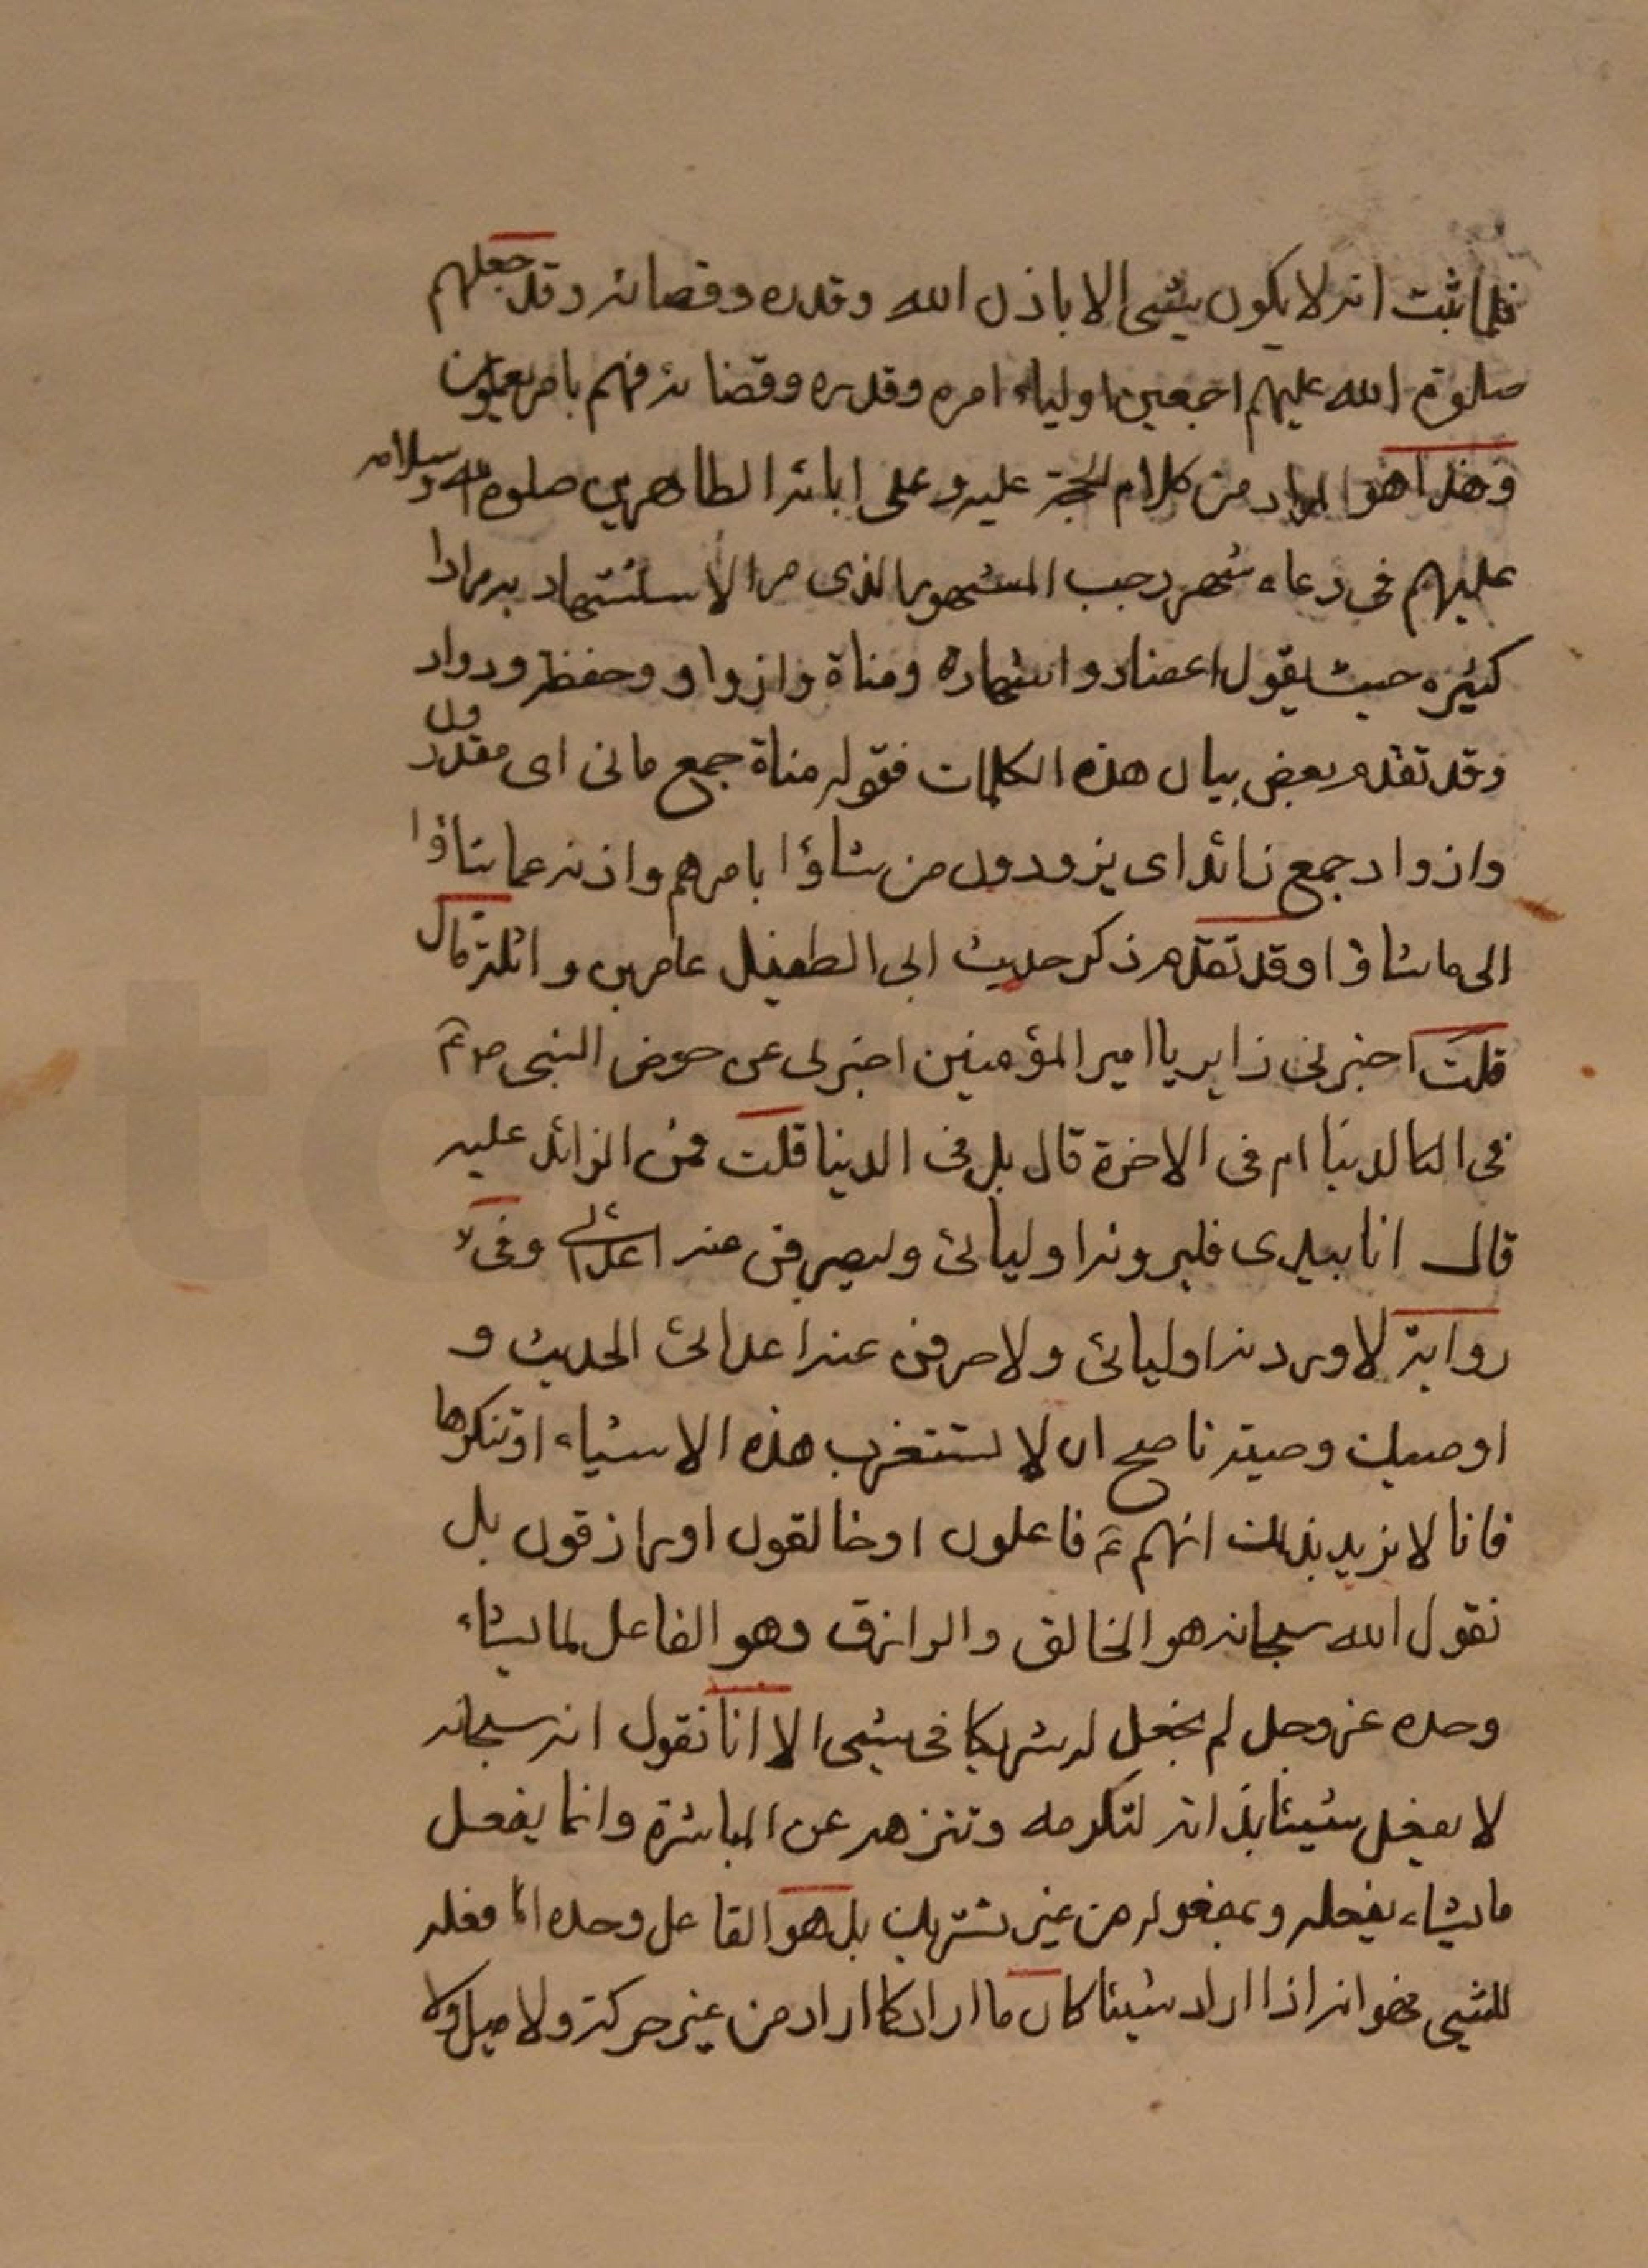 فلما ثبت انه لا يكون شئ الا باذن الله وقدره وقضائه وقد جعلهم
صلوة الله عليهم اجمعين اولياء امره وقدره وقضائه فهم بامره يعملون
وهذا هو المراد من كلام الحجة عليه وعلى ابائه الطاهرين صلوة الله وسلامه
عليهم فى دعاء شهر رجب المشهور الذى مر الاستشهاد به مرادا
كثيره حيث يقول اعضاد واشهاده ومناة وازواد وحفظه ورواد
وقد تقدم بعض بيان هذه الكلمات فقوله مناة جمع مانى اى مقدرون
وازواد جمع زائد اى يزودون من شاؤا بامرهم واذنه عما شاؤا
الى ما شاؤا وقد تقدم ذكر حديث ابى الطفيل عامر بن واثلة قال
قلت اخبرنى زاير يا امير المؤمنين اخبرنى عن حوض النبى ص ع
فى الدنيا ام فى الاخرة قال بل فى الدنيا قلت فمن الزائد عليه
قال انا بيدى فليرونه اوليائى وليصرفن عنه اعدائى وفى
رواية لاوردنه اوليائى ولاصرفن عنه اعدائى الحديث و
اوصيك وصية ناصح ان لا تستغرب هذه الاشياء او تنكرها
فانا لا نريد بذلك انهم ع فاعلون او خالقون او رازقون بل
نقول الله سبحانه هو الخالق والرازق وهو الفاعل لما يشاء
وحده عز وجل لم نجعل له شريكا فى شئ الا انا نقول انه سبحانه
لا يفعل شيئا بذاته لتكرمه وتنزهه عن المباشرة وانما يفعل
ما يشاء بفعله وبمفعوله من غير تشريك بل هو الفاعل وحده اما فعله
للشئ فهو انه اذا اراد شيئا كان ما اراد كما اراد من غير حركة ولا ميل ولا